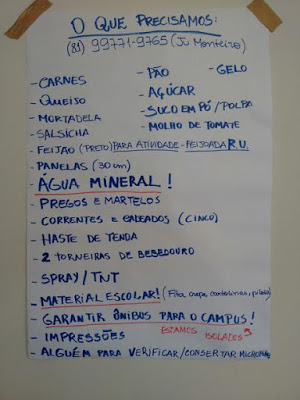 O QUE PRECISAMOS:
(81) 99771-9765 (Jô Monteiro)
- CARNES - PÃO - GELO
- QUEIJO - AÇÚCAR
- MORTADELA - SUCO EM PÓ / POLPA
- SALSÍCHA - MOLHO DE TOMATE
- FEIJÃO (PRETO) PARA ATIVIDADE - FEIJOADA R.U.
- PANELAS (30 cm)
- ÁGUA MINERAL!
- PREGOS E MARTELOS
- CORRENTES E CADEADOS (CINCO)
- HASTE DE TENDA
- 2 TORNEIRAS DE BEBEDOURO
- SPRAY / TNT
- MATERIAL ESCOLAR! (Fita crepe, cartolinas,
- GARANTIR ÔNIBUS PARA O CAMPUS!
ESTAMOS ISOLADOS
- IMPRESSÕES
- ALGUÉM PARA VERIFICAR/CONSERTAR